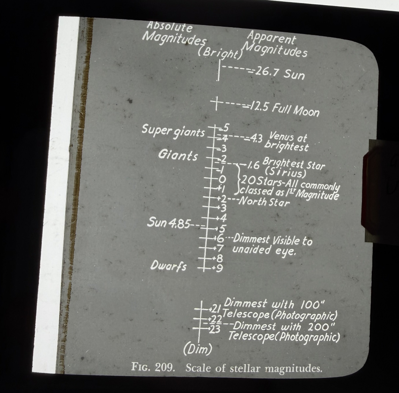 Absolute Magnitudes
Apparent Magnitudes
(Bright)
-26.7 Sun
-12.5 Full Moon
-5
Super giants
-4
-4.3 Venus at brightest
-3
Giants
-2
-1.6 Brightest Star (Sirius)
-1
0
20 Stars-All commonly classed as 1st Magnitude
+1
+2
North Star
+3
+4
Sun 4.85
+5
+6
Dimmest Visible to unaided eye.
+7
+8
Dwarfs
+9
+21
Dimmest with 100" Telescope (Photographic)
+22
+23
Dimmest with 200" Telescope (Photographic)
(Dim)
FIG. 209. Scale of stellar magnitudes.